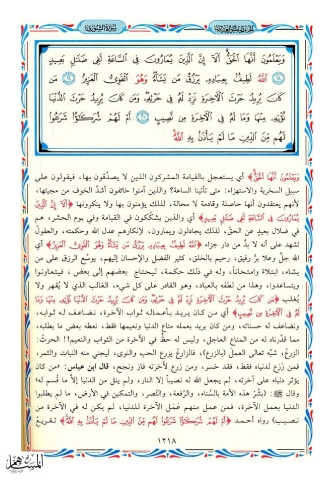 سورة الشورى
وَيَعْلَمُونَ أَنَّهَا الْحَقُّ أَلَا إِنَّ الَّذِينَ يُمَارُونَ فِي السَّاعَةِ لَفِي ضَلَالٍ بَعِيدٍ
اللَّهُ لَطِيفٌ بِعِبَادِهِ يَرْزُقُ مَن يَشَاءُ وَهُوَ الْقَوِيُّ الْعَزِيزُ مَن
كَانَ يُرِيدُ حَرْثَ الْآخِرَةِ نَزِدْ لَهُ فِي حَرْثِهِ وَمَن كَانَ يُرِيدُ حَرْثَ الدُّنْيَا
نُؤْتِهِ مِنْهَا وَمَا لَهُ فِي الْآخِرَةِ مِن نَّصِيبٍ أَمْ لَهُمْ شُرَكَاؤُا شَرَعُوا
لَهُم مِّنَ الدِّينِ مَا لَمْ يَأْذَن بِهِ اللَّهُ
وَيَعْلَمُونَ أَنَّهَا الْحَقُّ﴾ أي يستعجل بالقيامة المشركون الذين لا يصدّقون بها، فيقولون على
سبيل السخرية والاستهزاء: متى تأتينا الساعة؟ والذين آمنوا خائفون أشدّ الخوف من مجيئها،
لأنهم يعتقدون أنها حاصلة وقادمة لا محالة، لذلك يؤمنون بها ولا ينكرونها ﴿أَلَا إِنَّ الَّذِينَ
يُمَارُونَ فِي السَّاعَةِ لَفِي ضَلَالٍ بَعِيدٍ﴾ أي والذين يشكّكون في القيامة وفي يوم الحشر، هم
في ضلال بعيد عن الحق، لذلك يجادلون ويمارون، لإنكارهم عدل الله وحكمته، والعقول
تشهد على أنه لا بدّ من دار جزاء ﴿اللَّهُ لَطِيفٌ بِعِبَادِهِ يَرْزُقُ مَن يَشَاءُ وَهُوَ الْقَوِيُّ الْعَزِيزُ﴾ أي
الله جلّ وعلا برّ رفيق، رحيم بالخلق، كثير الفضل والإحسان إليهم، يوسّع الرزق على من
يشاء، ابتلاءً وامتحاناً، وله في ذلك حكمة، ليحتاج بعضهم إلى بعض، فيتعاونوا
ويتساعدوا، وهذا من لطفه بالعباد، وهو القادر على كل شيء، الغالب الذي لا يُقهر ولا
يُغلب ﴿مَن كَانَ يُرِيدُ حَرْثَ الْآخِرَةِ نَزِدْ لَهُ فِي حَرْثِهِ وَمَن كَانَ يُرِيدُ حَرْثَ الدُّنْيَا نُؤْتِهِ مِنْهَا وَمَا
لَهُ فِي الْآخِرَةِ مِن نَّصِيبٍ﴾ أي من كان يريد بأعماله ثواب الآخرة، نضاعف له ثوابه،
ونضاعف له حسناته، ومن كان يريد بعمله متاع الدنيا ونعيمها فقط، نعطه بعض ما يطلبه،
مما قدّرناه له من المتاع العاجل، وليس له حظّ في الآخرة من الثواب والنعيم!! الحرث:
الزرعُ، شبّه تعالى العمل (بالزرع)، فالزارع يزرع الحب والنوى، ليجني منه النبات والثمر،
فمن زرع لدنياه فقط، فقد خسر، ومن زرع لآخرته فاز ونجح، قال ابن عباس: «من كان
يؤثر دنياه على آخرته، لم يجعل الله له نصيباً إلا النار، ولم ينل من الدنيا إلا ما قُسم له»
وقال ﷺ: (بشّرْ هذه الأمة بالسَّناء، والرِّفعة، والنَّصر، والتمكين في الأرض، ما لم يطلبوا
الدنيا بعمل الآخرة، فمن عمل منهم عمل الآخرة للدنيا، لم يكن له في الآخرة من
نصيب) رواه أحمد ﴿أَمْ لَهُمْ شُرَكَاؤُا شَرَعُوا لَهُم مِّنَ الدِّينِ مَا لَمْ يَأْذَن بِهِ اللَّهُ﴾ تقريع
١٢١٨